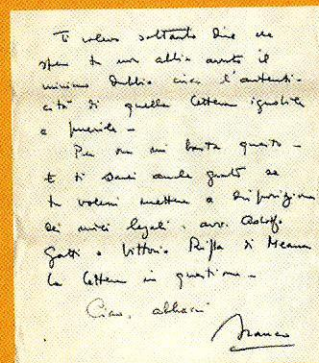 Ti volevo soltanto dire che
spero tu non abbia avuto il
minimo dubbio circa l'autenti-
cità di quella lettera ignobile
e puerile -
Per ora mi basta questo -
E ti sarei anche grato se
tu volessi mettere a disposizione
dei miei legali, avv. Adolfo
Gatti e Vittorio Ripa di Meana
la lettera in questione -
Ciao, abbracci
Franco